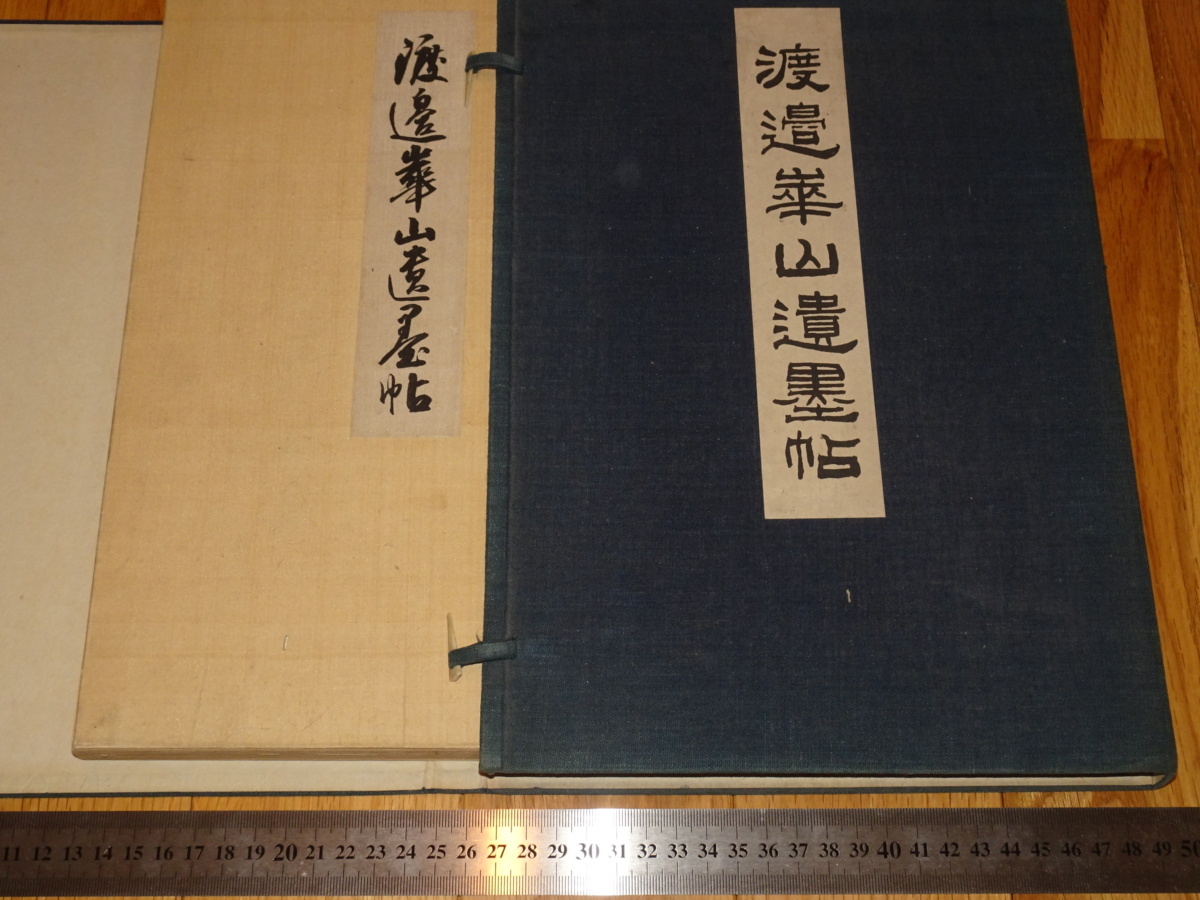 渡邉崋山遺墨帖
渡邉崋山遺墨帖
11 12 13 14 15 16 17 18 19 20 21 22 23 24 25 26 27 28 29 30 31 32 33 34 35 36 37 38 39 40 41 42 43 44 45 46 47 48 49 50